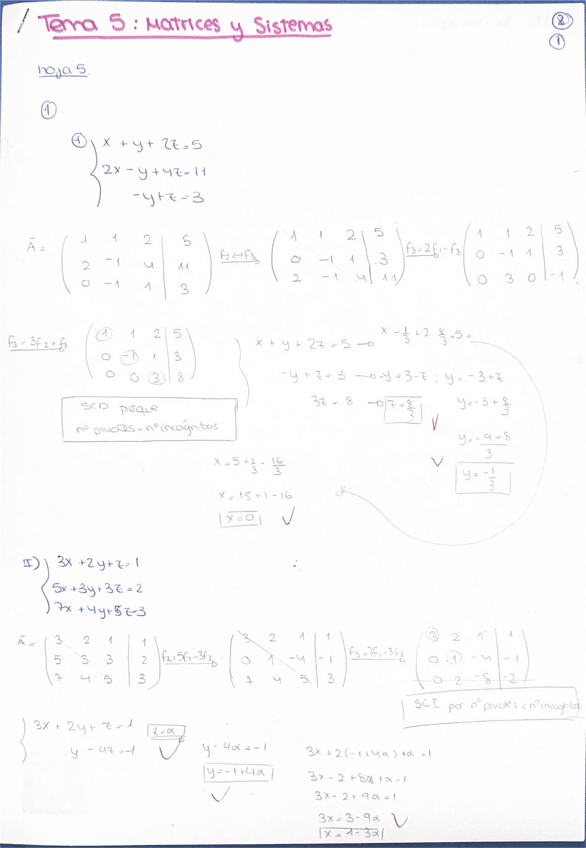 Tema 5: Matrices y Sistemas
2
1
hoja 5.
1
1) x + y + 2z = 5
2x - y + 4z = 11
-y + z = 3
Ā = ( 1 1 2 | 5 ) f2↔f3 ( 1 1 2 | 5 ) f3=2f1-f3 ( 1 1 2 | 5 )
( 2 -1 4 | 11 ) ( 0 -1 1 | 3 ) ( 0 -1 1 | 3 )
( 0 -1 1 | 3 ) ( 2 -1 4 | 11 ) ( 0 3 0 | -1 )
f3=3f2+f3 ( 1 1 2 | 5 )
( 0 -1 1 | 3 )
( 0 0 3 | 8 )
SCD porque
nº pivotes = nº incógnitas
x + y + 2z = 5 → x - 1/3 + 2 8/3 = 5
-y + z = 3 → -y = 3 - z ; y = -3 + z
3z = 8 → z = 8/3
y = -3 + 8/3
y = -9+8/3
y = -1/3
x = 5 + 1/3 - 16/3
x = 15 + 1 - 16
x = 0
II) 3x + 2y + z = 1
5x + 3y + 3z = 2
7x + 4y + 5z = 3
Ā = ( 3 2 1 | 1 ) f2=5f1-3f2 ( 3 2 1 | 1 ) f3=7f1-3f3 ( 3 2 1 | 1 )
( 5 3 3 | 2 ) ( 0 1 -4 | -1 ) ( 0 1 -4 | -1 )
( 7 4 5 | 3 ) ( 7 4 5 | 3 ) ( 0 2 -8 | -2 )
SCI por nº pivotes < nº incógnitas
3x + 2y + z = 1
y - 4z = -1
z = α
y - 4α = -1
y = -1 + 4α
3x + 2(-1+4α) + α = 1
3x - 2 + 8α + α = 1
3x - 2 + 9α = 1
3x = 3 - 9α
x = 1 - 3α